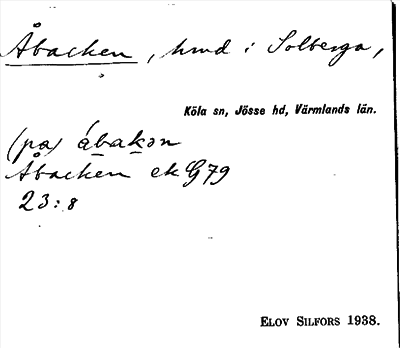 Åbacken, hmd i Solberga,
Köla sn, Jösse hd, Värmlands län.
(pa) ábakən
Åbacken ek G79
23:8
ELOV SILFORS 1938.